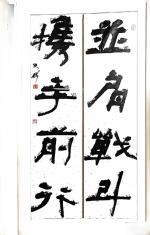 並肩戰鬥
攜手前行